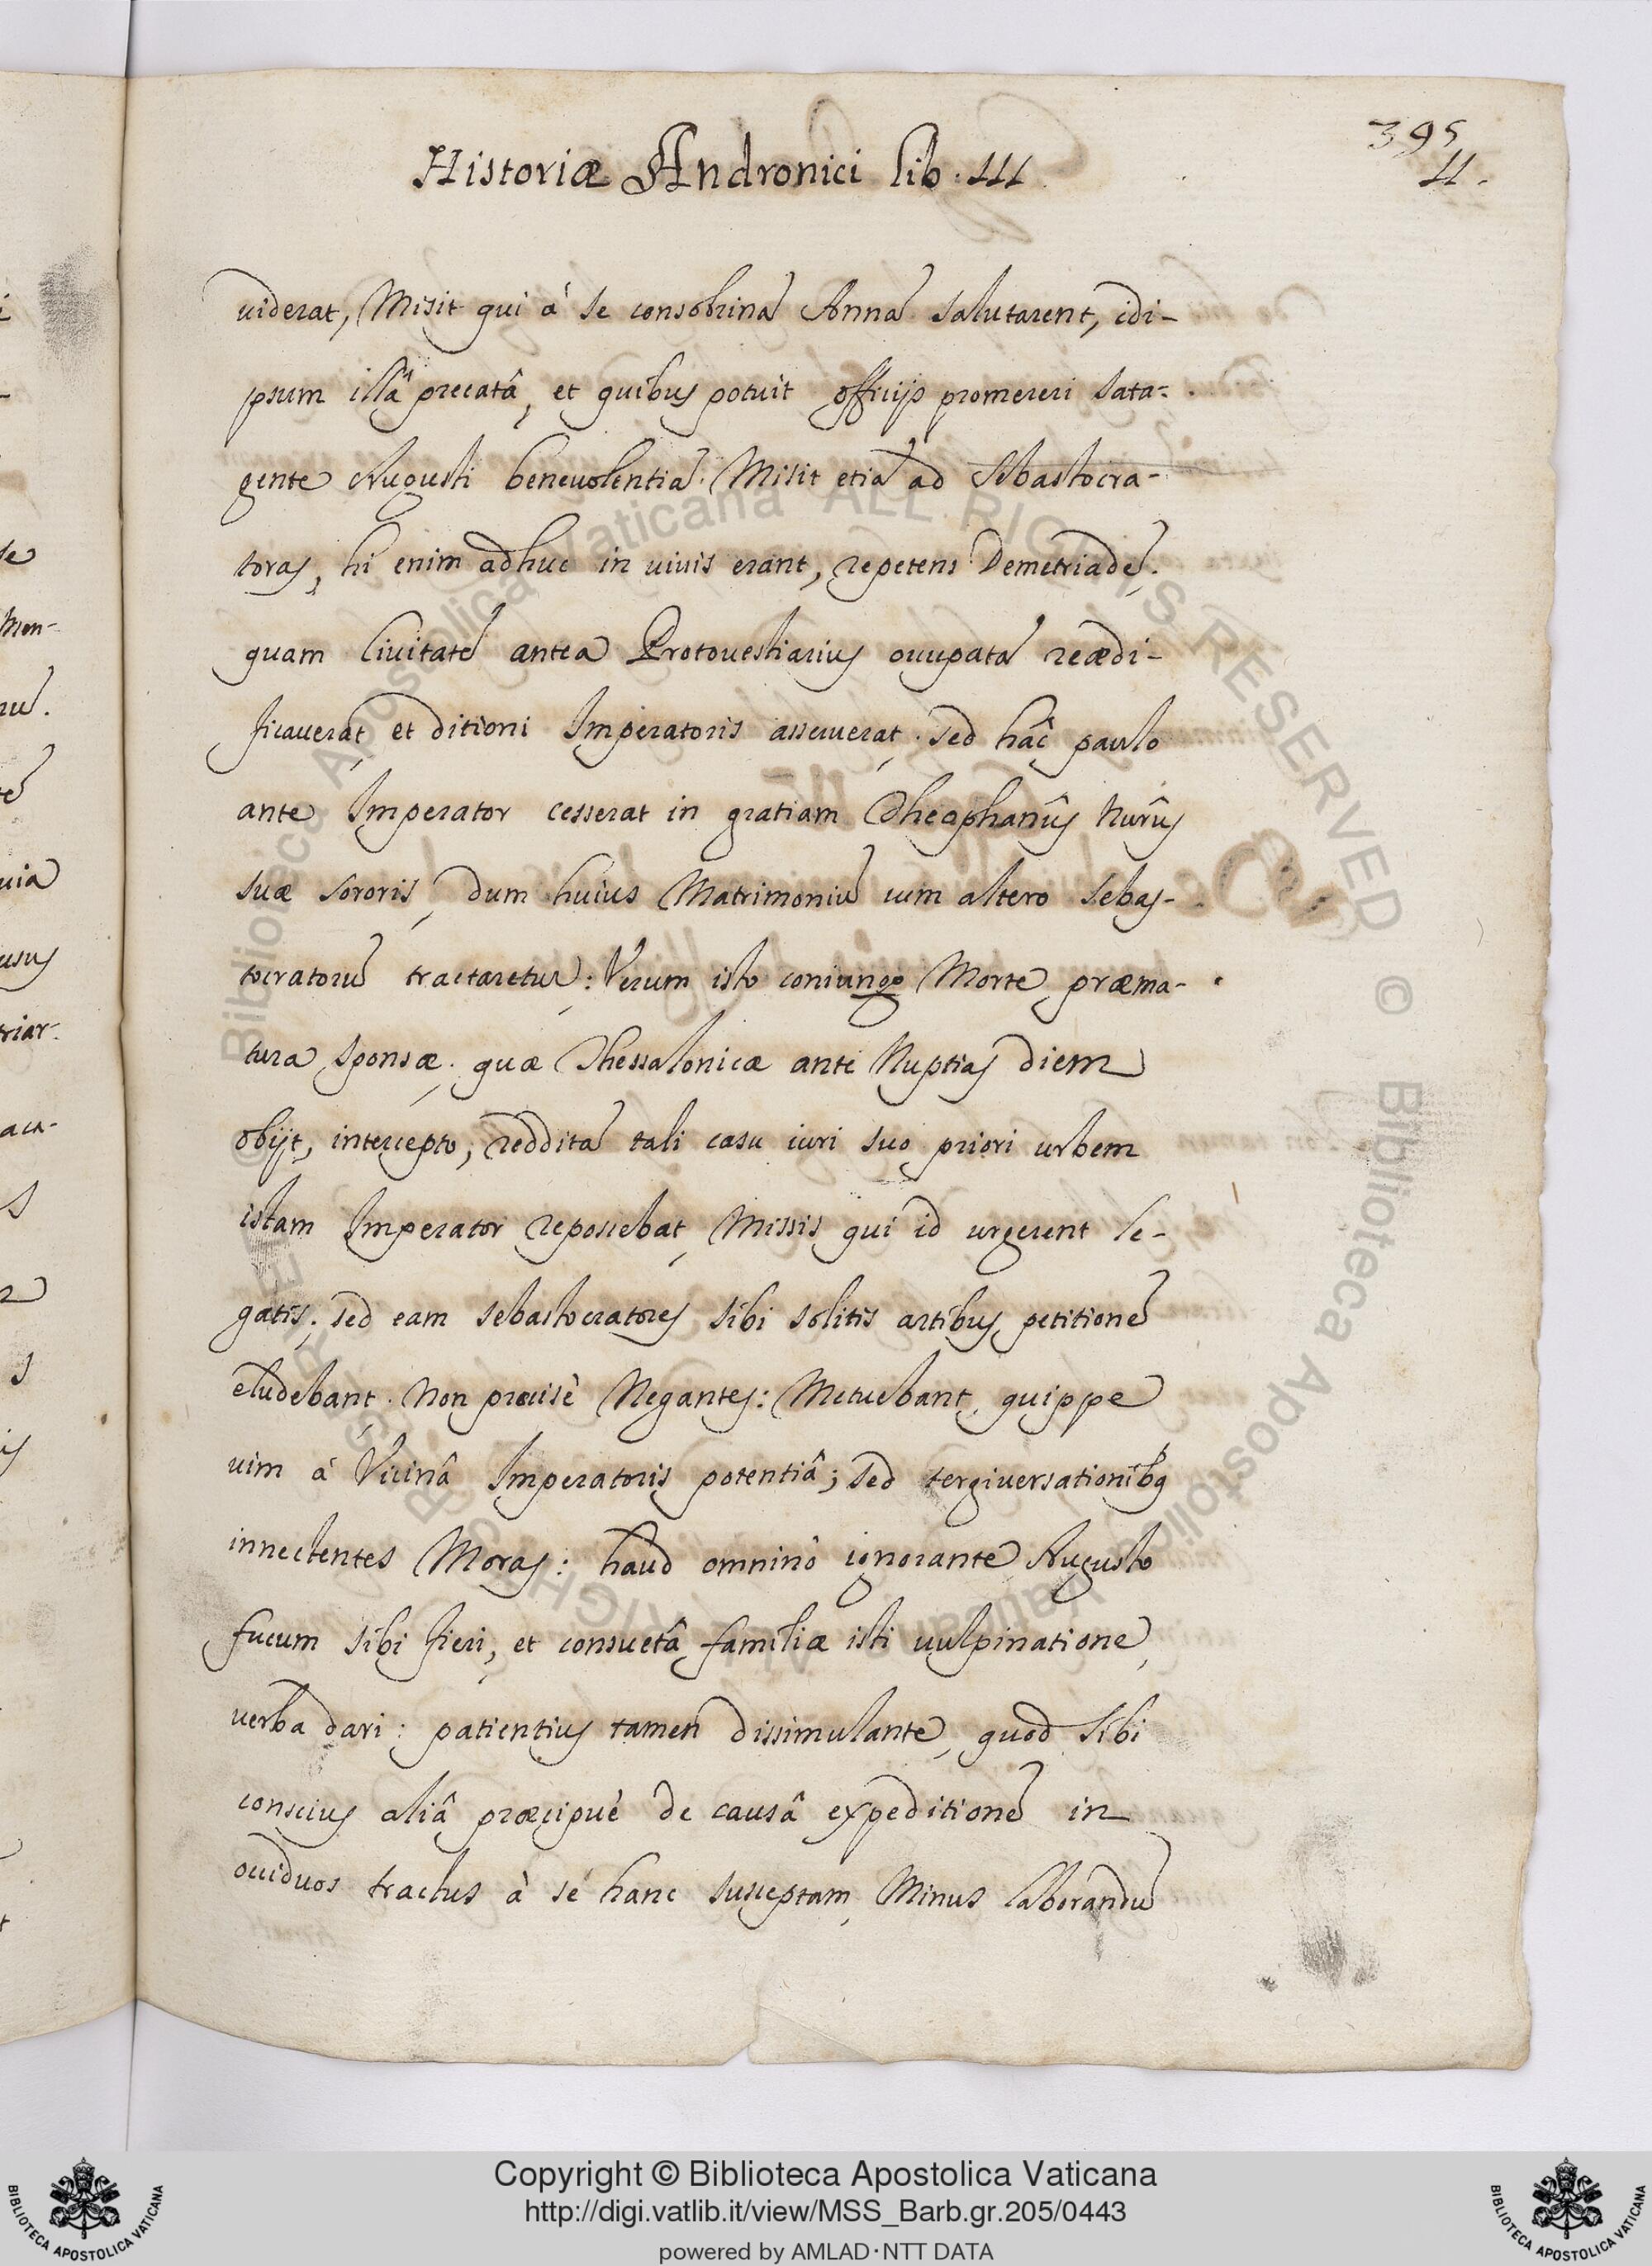 395
Historiæ Andronici lib. III
11.
uiderat, Misit qui à se consobrinã Annã salutarent, idi-
psum illâ precatâ, et quibus potuit officijs promereri sata-
gente Augusti beneuolentiã. Misit etiã ad Sebastocra-
toras, hi enim adhuc in uiuis erant, repetens Demetriadẽ.
quam Ciuitatẽ antea Protouestiarius occupatã reædi-
ficauerat, et ditioni Imperatoris asseruerat. sed hãc paulo
ante Imperator cesserat in gratiam Theophanûs Nurûs
suæ sororis, dum huius Matrimoniũ cum altero sebas-
tocratorũ tractaretur: Verum isto coniungo Morte præma-
tura sponsæ. quæ Thessalonicæ ante Nuptias diem
obijt, intercepto; redditã tali casu iuri suo priori urbem
istam Imperator reposcebat, Missis, qui id urgerent le-
gatis; sed eam sebastocratores sibi solitis artibus petitionẽ
eludebant. Non præcisè Negantes: Metuebant, quippe
uim à Vicinâ Imperatoris potentiâ; sed tergiuersationibq
innectentes Moras: haud omninò ignorante Augusto
fucum sibi fieri, et consuetâ familiæ isti uulpinatione,
uerba dari: patientius tamen dissimulante, quod sibi
conscius aliâ præcipuè de causâ expeditionẽ in
occiduos tractus à sé hanc susceptam, Minus laborandũ
se
Men-
uia
usus
triar-
acu-
Copyright © Biblioteca Apostolica Vaticana
http://digi.vatlib.it/view/MSS_Barb.gr.205/0443
powered by AMLAD·NTT DATA
BIBLIOTECA APOSTOLICA VATICANA
BIBLIOTECA APOSTOLICA VATICANA
Biblioteca Apostolica Vaticana ALL RIGHTS RESERVED © Biblioteca Apostolica Vaticana ALL RIGHTS RESERVED ©